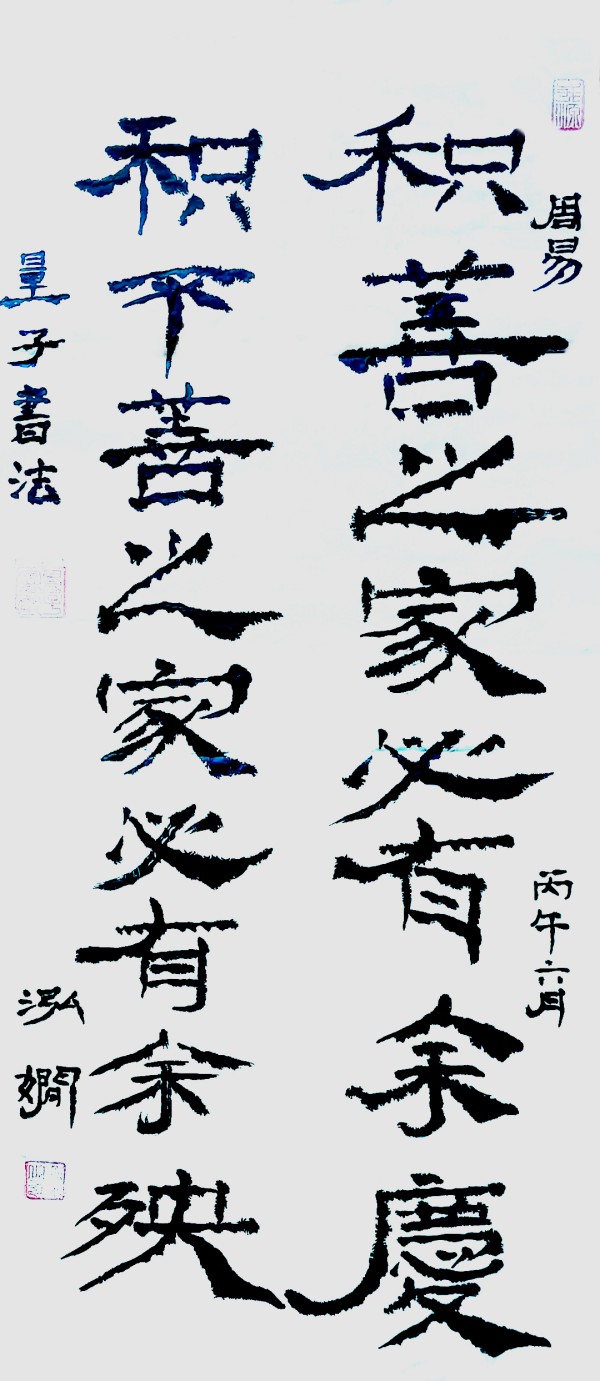 周易
丙午六月
积善之家必有余慶
积不善之家必有余殃
子書法
泓嫺